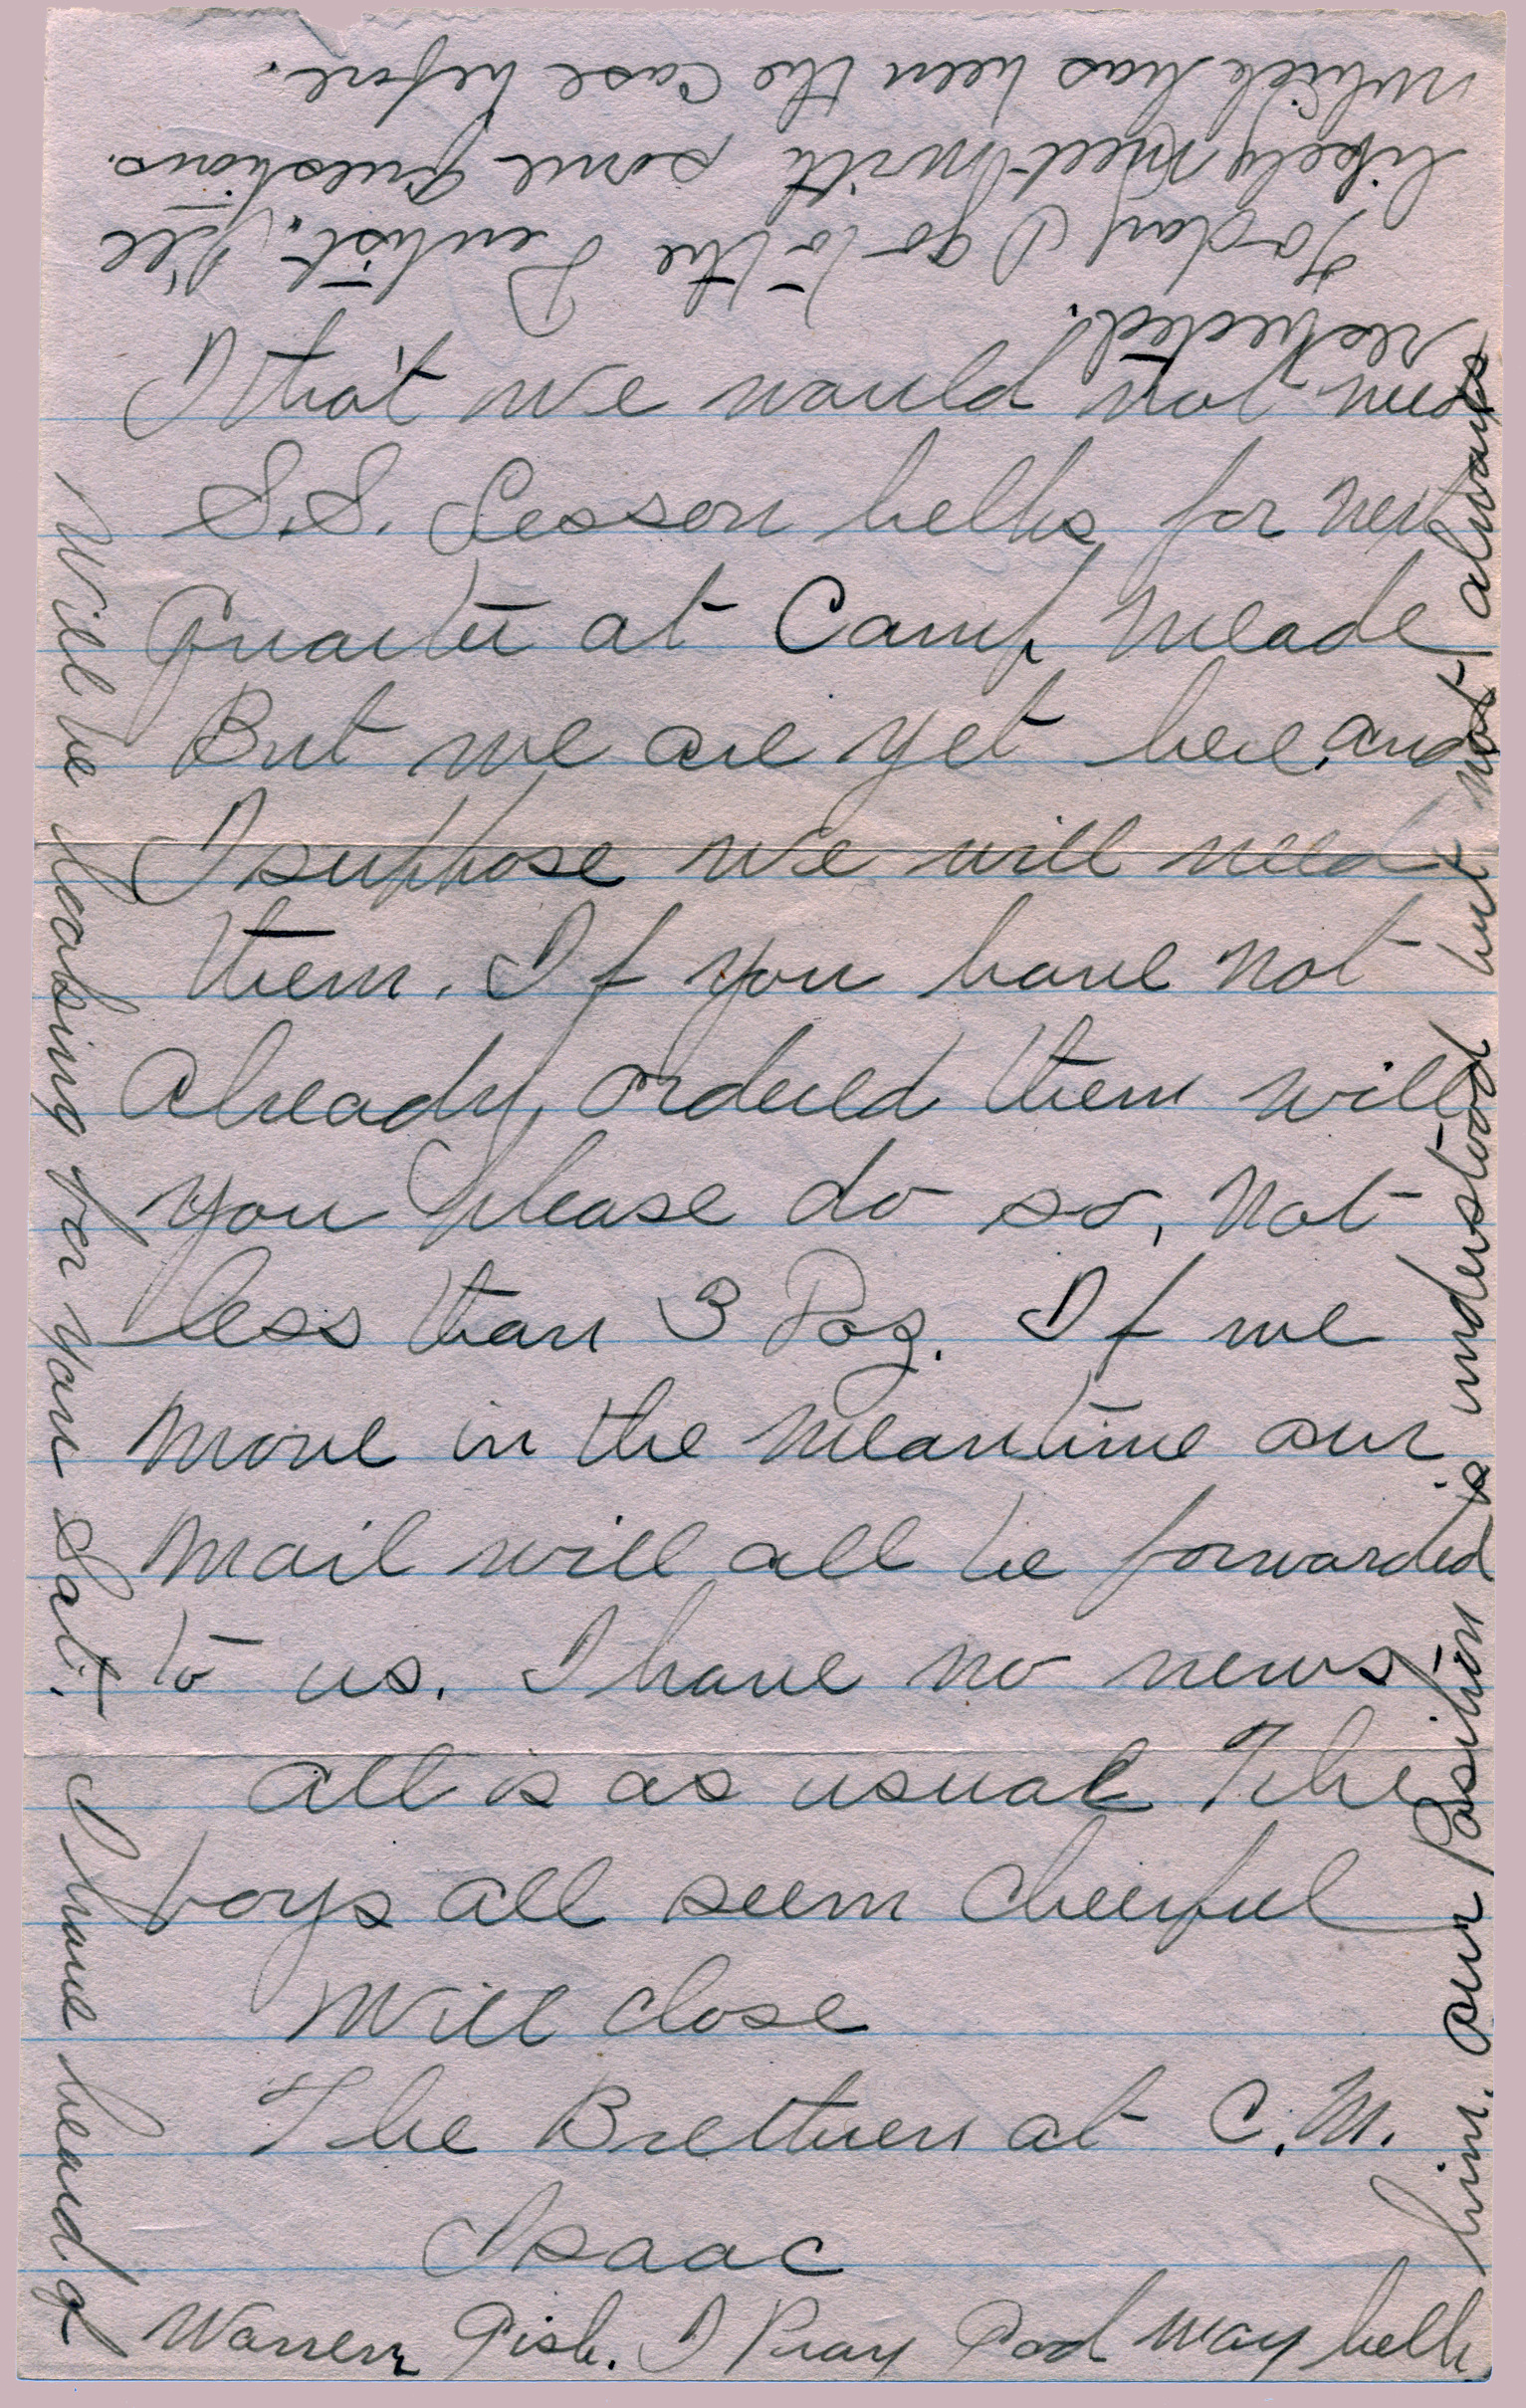 that we would not need
S.S. Lesson helps for next
Quarter at Camp Meade
But we are yet here, and
I suppose we will need
them. If you have not
already ordered them will
you please do so, not
less than 3 Doz. If we
move in the meantime our
mail will all be forwarded
to us. I have no news
all is as usual The
boys all seem cheerful
Will close
The Brethren at C.M.
Isaac
Will be looking for you Sat. I have heard of
Warren Gish. I Pray God may help
him. our Position is understood but not always
respected.
Today I go to the Dentist. I'll
likely meet with some Questions.
which has been the case before.